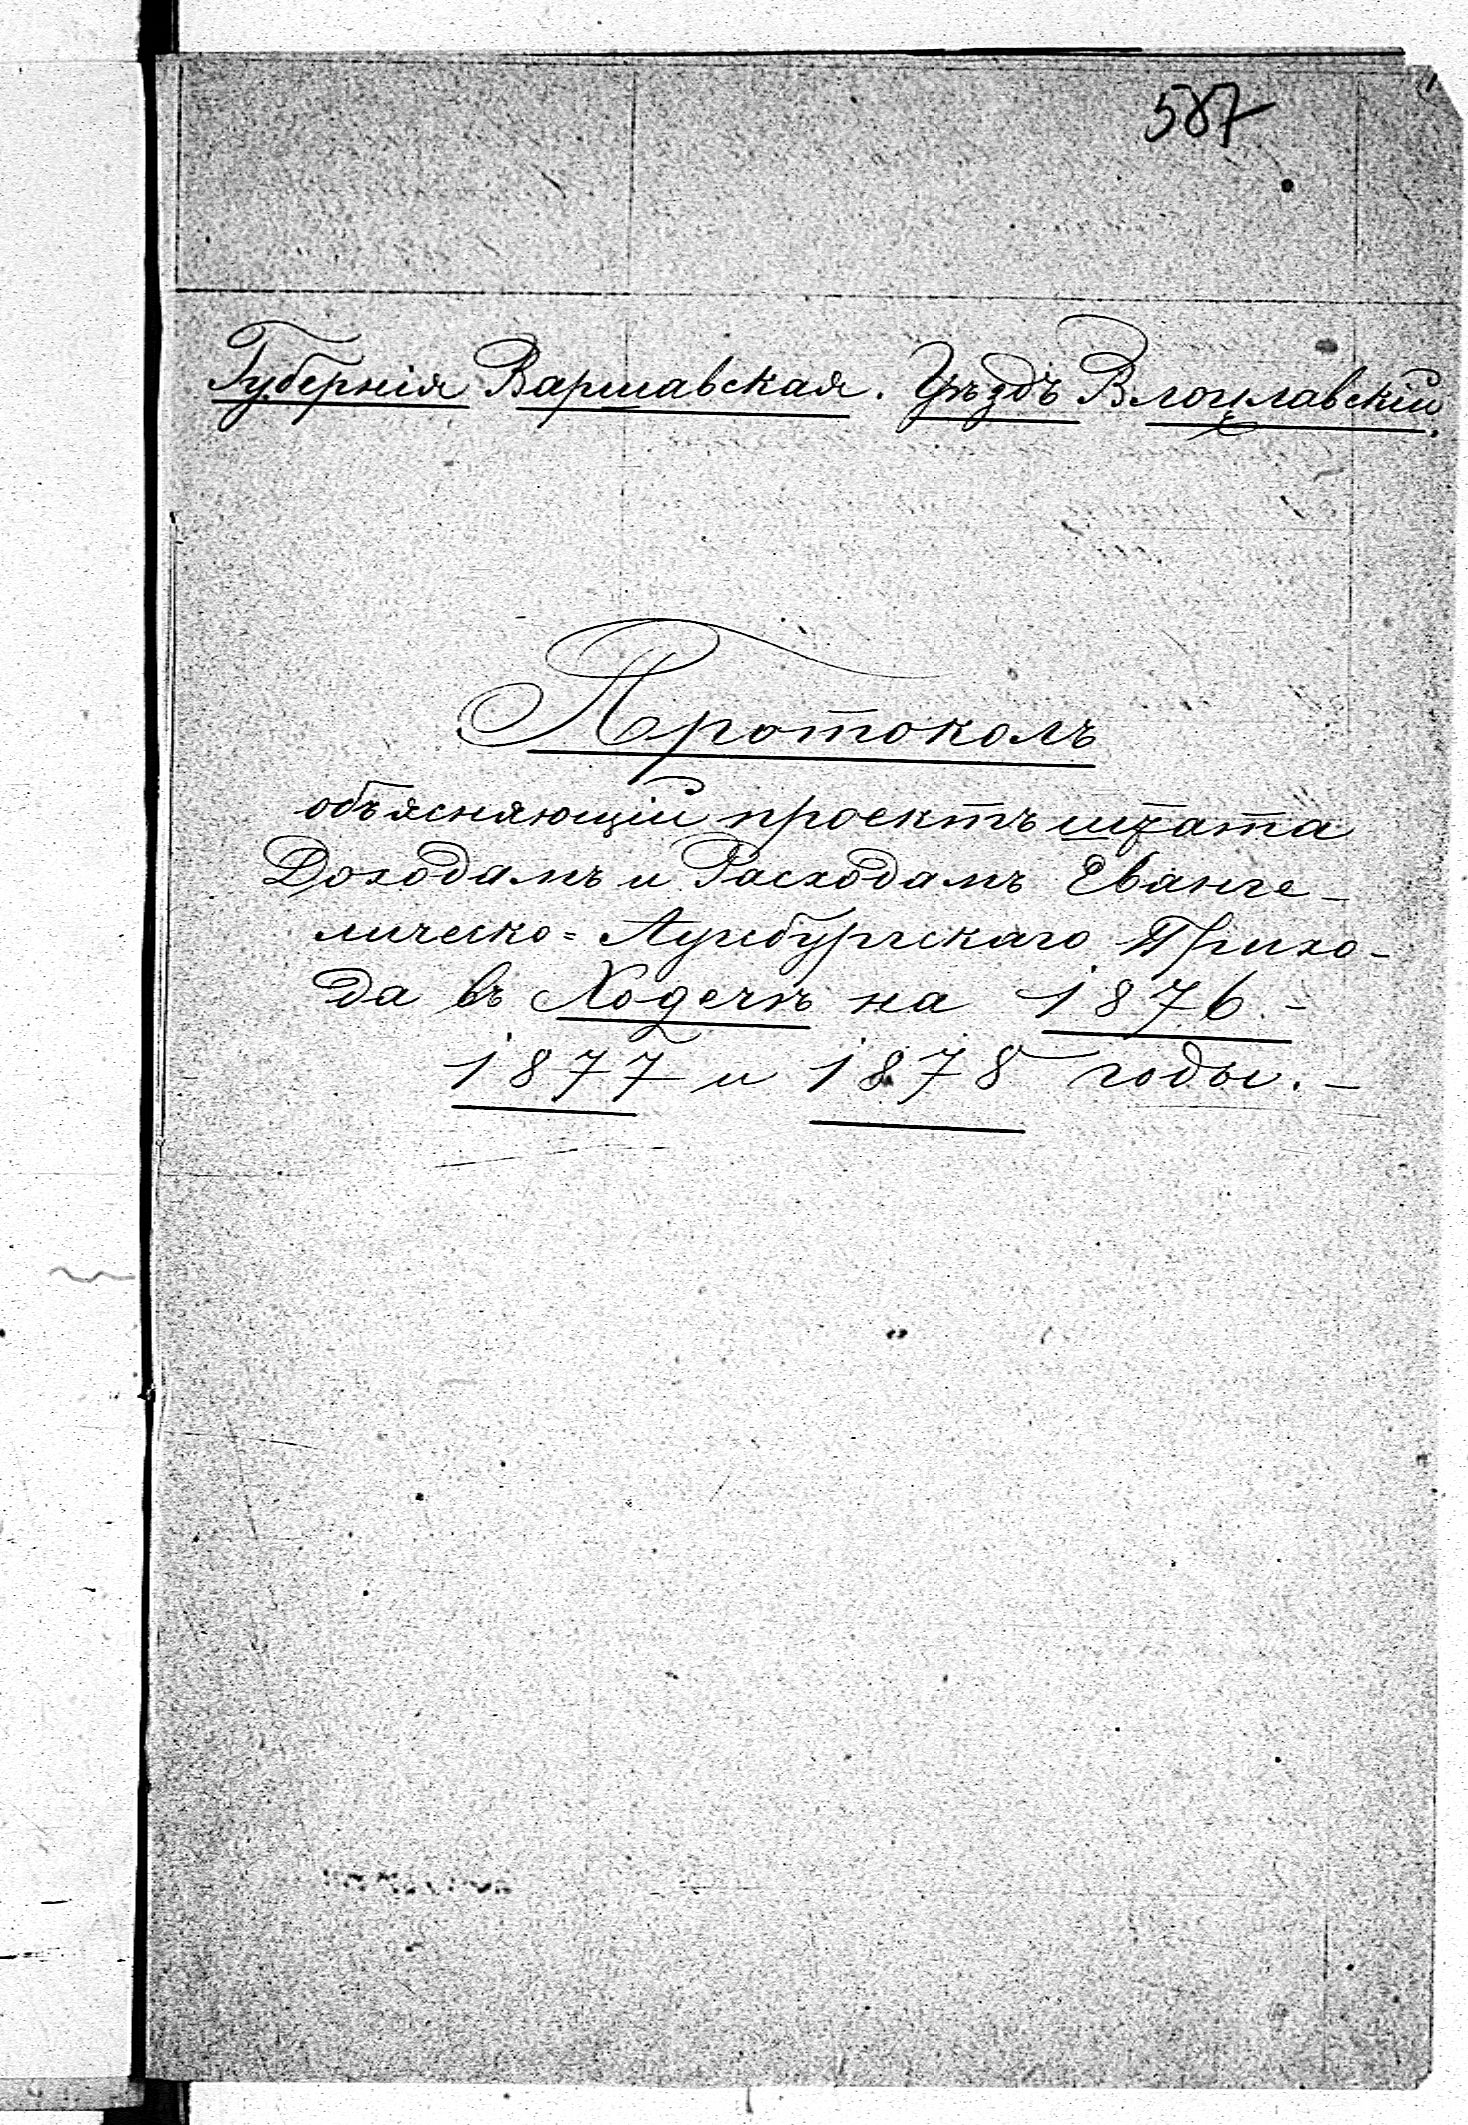 587
Губернія Варшавская. Уѣздъ Влоцлавскій.
Протоколъ
объясняющій проектъ штата
Доходамъ и Расходамъ Еванге-
лическо=Аугсбургскаго Прихо-
да въ Ходечѣ на 1876.-
1877 и 1878 годы.-